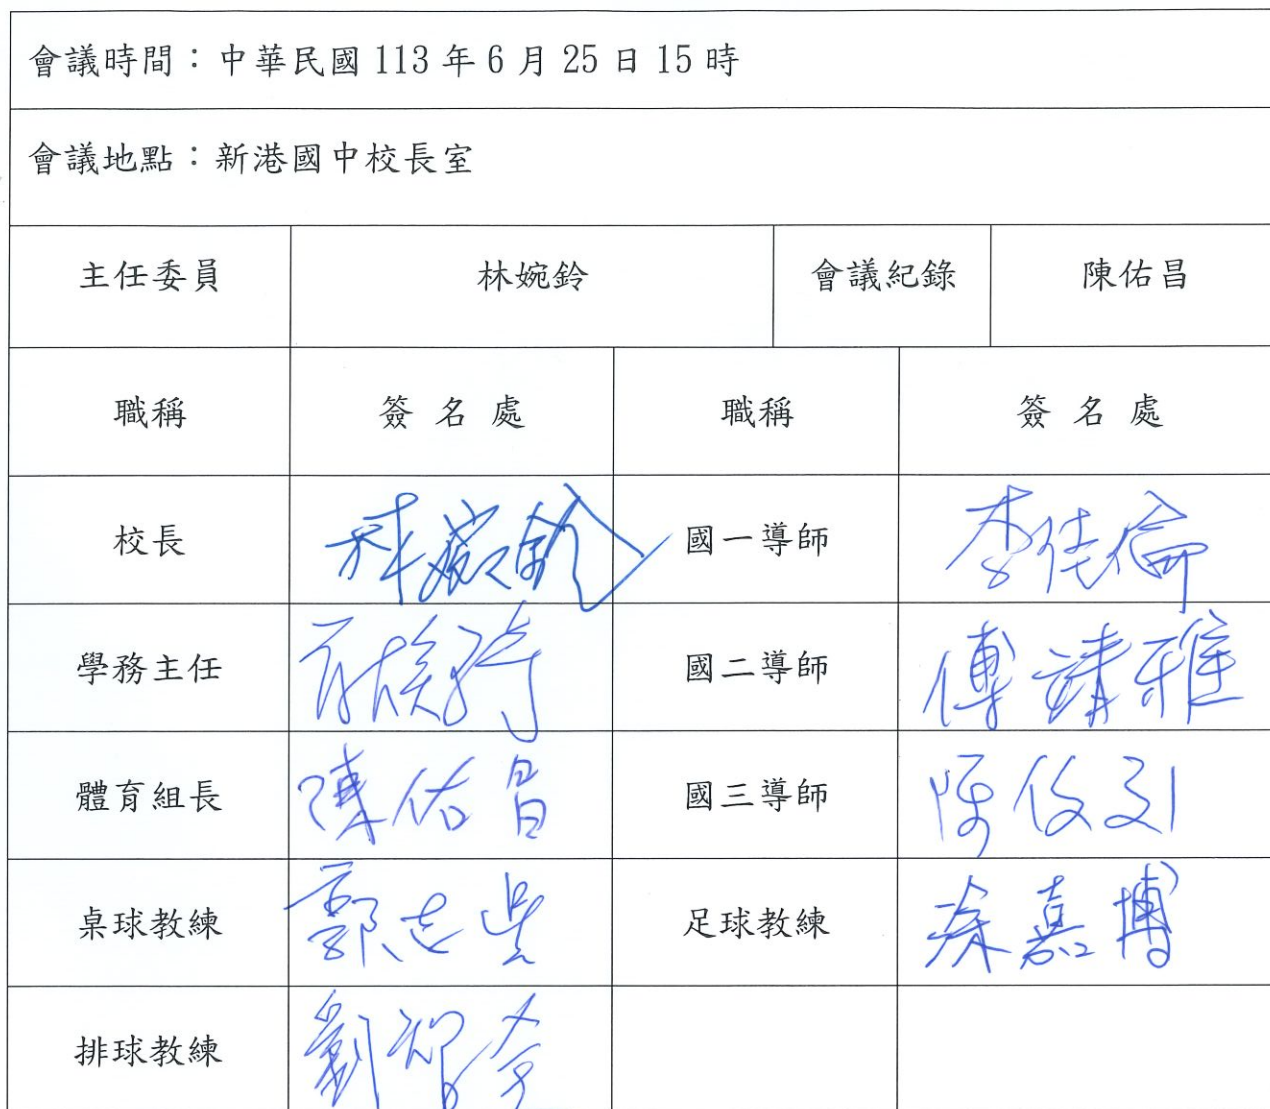 會議時間：中華民國 113 年 6 月 25 日 15 時
會議地點：新港國中校長室
主任委員 林婉鈴 會議紀錄 陳佑昌
職稱 簽 名 處 職稱 簽 名 處
校長 國一導師 李佳倫
學務主任 國二導師 傅靖雅
體育組長 陳佑昌 國三導師
桌球教練 郭志 足球教練 涂嘉博
排球教練 劉